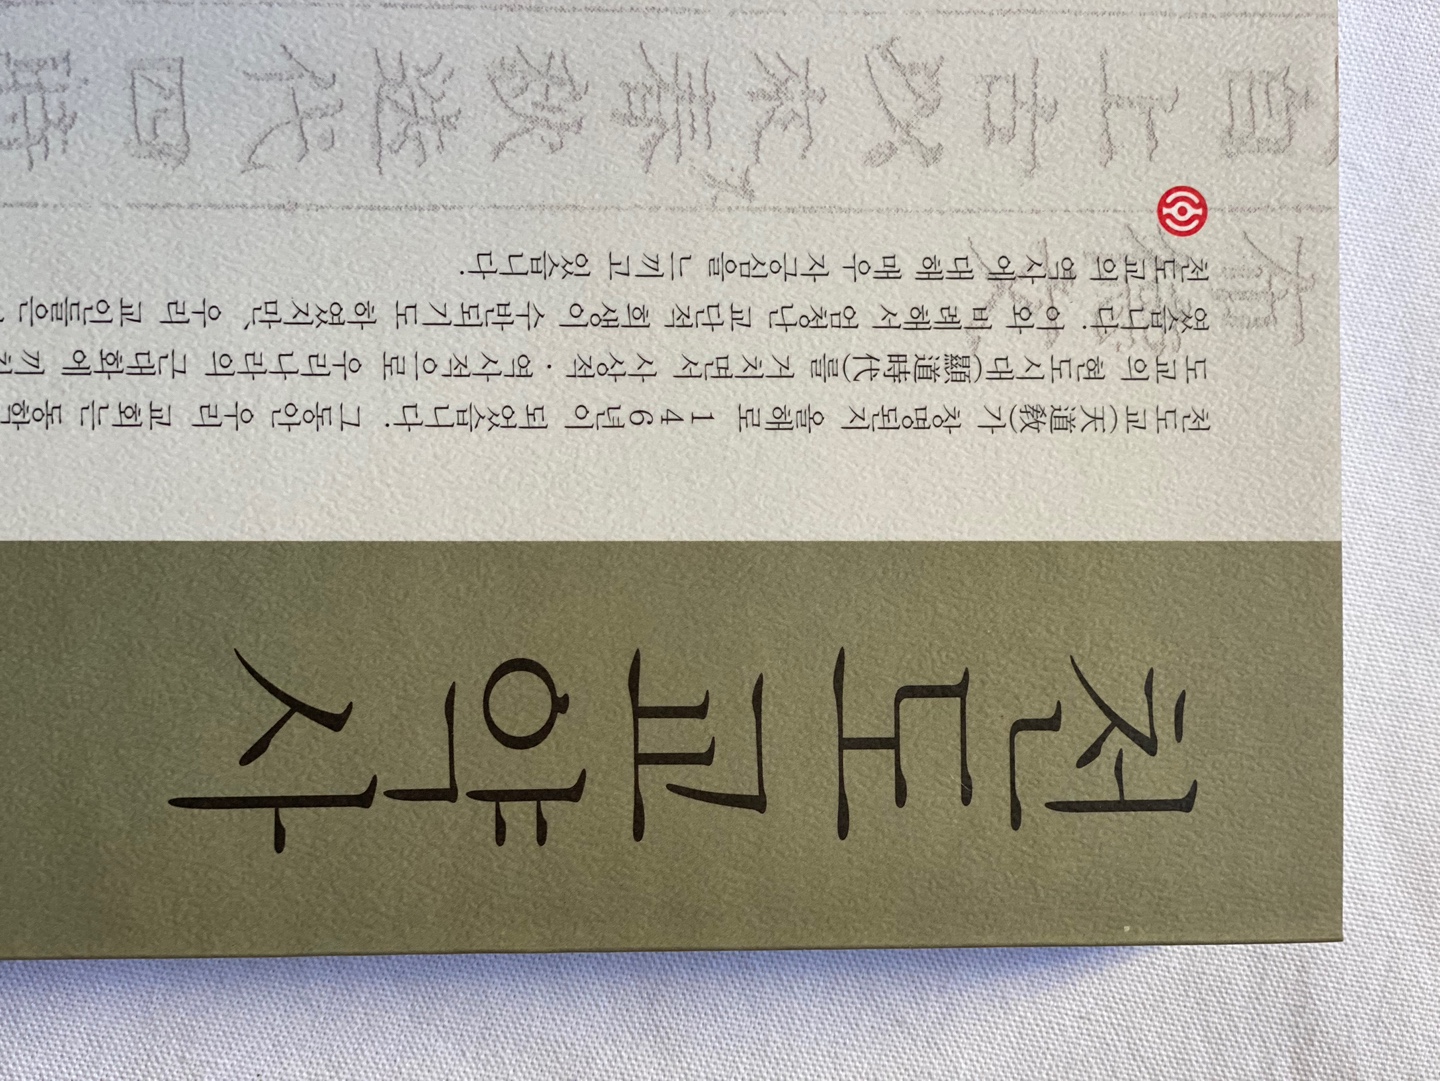 천도교약사
천도교(天道敎)가 창명된지 올해로 146년이 되었습니다. 그동안 우리 교회는 동학
도교의 현도시대(顯道時代)를 거치면서 사상적·역사적으로 우리나라의 근대화에 끼친
였습니다. 이와 비례해서 엄청난 교단적 희생이 수반되기도 하였지만, 우리 교인들은
천도교의 역사에 대해 매우 자긍심을 느끼고 있습니다.
自上古以來春秋迭代四時